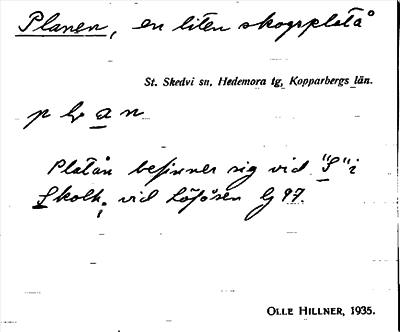 Planen, en liten skogsplatå
St. Skedvi sn, Hedemora tg, Kopparbergs län.
Platån befinner sig vid "S" i
Skolh. vid Löfåsen G 97.
OLLE HILLNER, 1935.